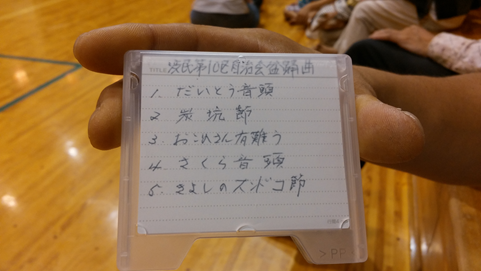 TITLE 浪民第10区自治会盆踊曲
1. だいとう音頭
2 炭坑節
3. おこめさん有難う
4. さくら音頭
5. きよしのズンドコ節
>PP<